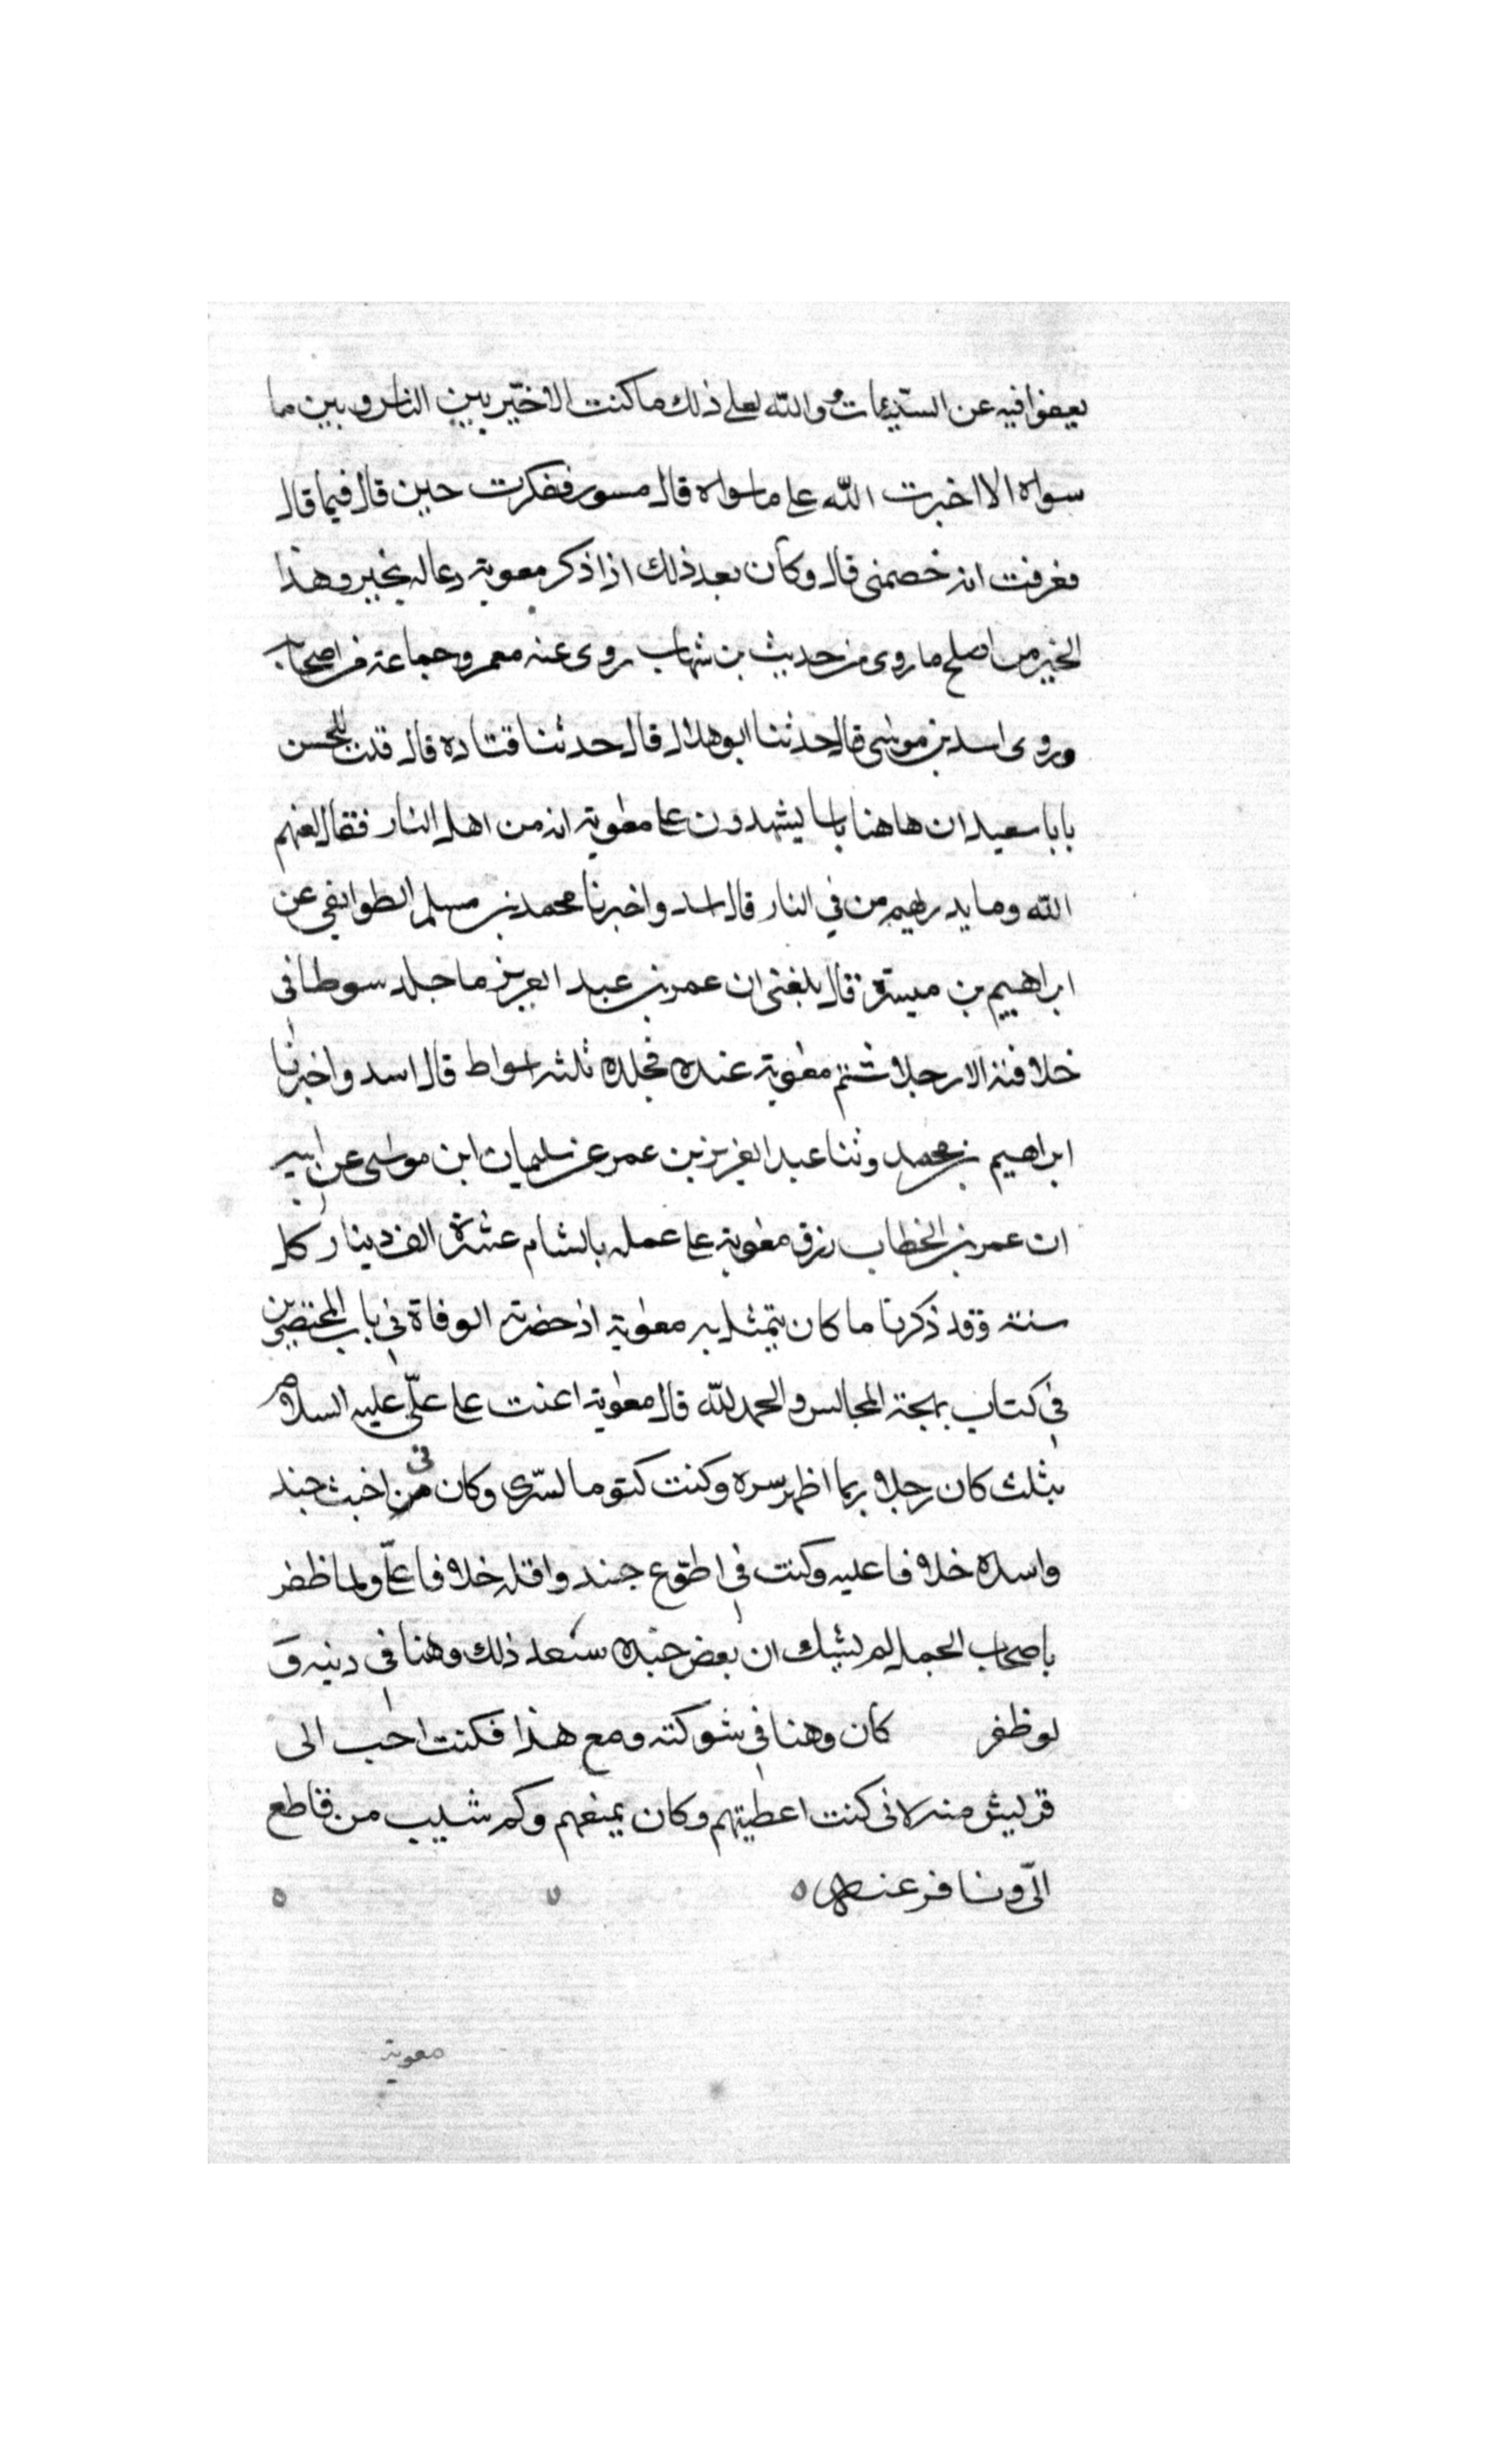 يعفوا فيه عن السيئات والله لعلى ذلك ما كنت لاخير بين الناس وبين ما
سواه الا اخبرت الله على ما سواه قال مسور ففكرت حين قال فيما قال
فعرفت انه خصمنى قال وكان بعد ذلك اذا ذكر معوية دعا له بخير وهذا
الخبر من اصلح ما روى من حديث بن شهاب روى عنه معمر وجماعة من اصحابه
وروى اسد بن موسى قال حدثنا ابو هلال قال حدثنا قتادة قال قلت للحسن
يابا سعيد ان هاهنا ناسا يشهدون على معوية انه من اهل النار فقال لعنهم
الله وما يدريهم من في النار قال اسد واخبرنا محمد بن مسلم الطوايفي عن
ابراهيم بن ميسرة قال بلغنى ان عمر بن عبد العزيز ما جلد سوطا فى
خلافته الا رجلا شتم معوية عنده فجلده ثلثه اسواط قال اسد واخبرنا
ابراهيم بن محمد وثنا عبد العزيز بن عمر عن سليمان ابن موسى عن ابيه
ان عمر بن الخطاب رزق معوية على عمله بالشام عشرة الف دينار كل
سنة وقد ذكرنا ما كان يتمثل به معوية اذ حضرته الوفاة في باب المحتضرين
في كتاب بهجة المجالس والحمد لله قال معوية اعنت على علّى عليه السلام
بثلث كان رجلا ربما اظهر سره وكنت كتوما لسّرى وكان فى اخبث جند
واسده خلافا عليه وكنت في اطوع جند واقله خلافا علّى ولما ظفر
باصحاب الجمل لم يشك ان بعض جنده سيعد ذلك وهنا في دينه و
لو ظفر كان وهنا في شوكته ومع هذا فكنت احب الى
قريش منه لانى كنت اعطيهم وكان يمنعهم وكم سبب من قاطع
الىّ ونافر عنه
معوية